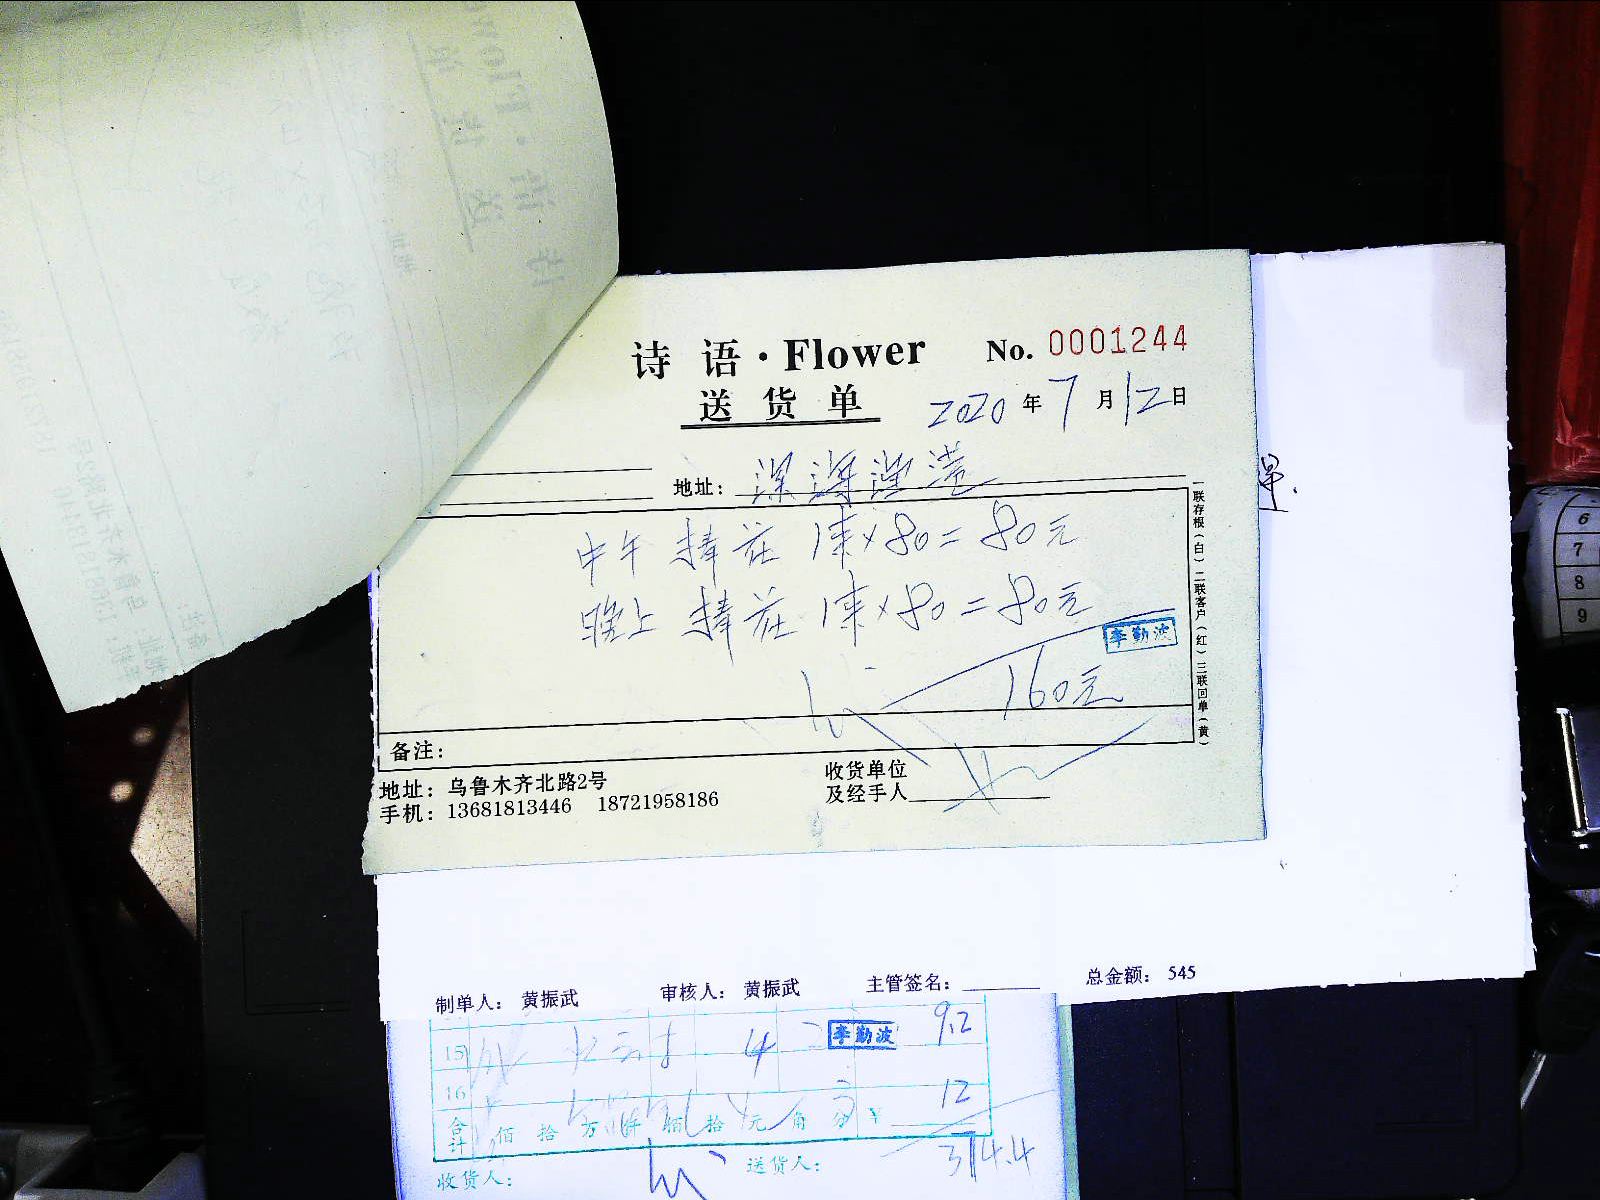 诗 语 · Flower No. 0001244
送 货 单 2020 年 7 月 12 日
地址：
中午 捧花 1束×80=80元
晚上 捧花 1束×80=80元
李勤波
160元
一联存根（白）二联客户（红）三联回单（黄）
备注：
地址：乌鲁木齐北路2号
手机：13681813446 18721958186
收货单位
及经手人
单.
6
7
8
9
制单人：黄振武 审核人：黄振武 主管签名： 总金额：545
15 4 李勤波 9.2
16 12
合计 佰 拾 万 仟 佰 拾 元 角 分 ¥
314.4
收货人： 送货人：